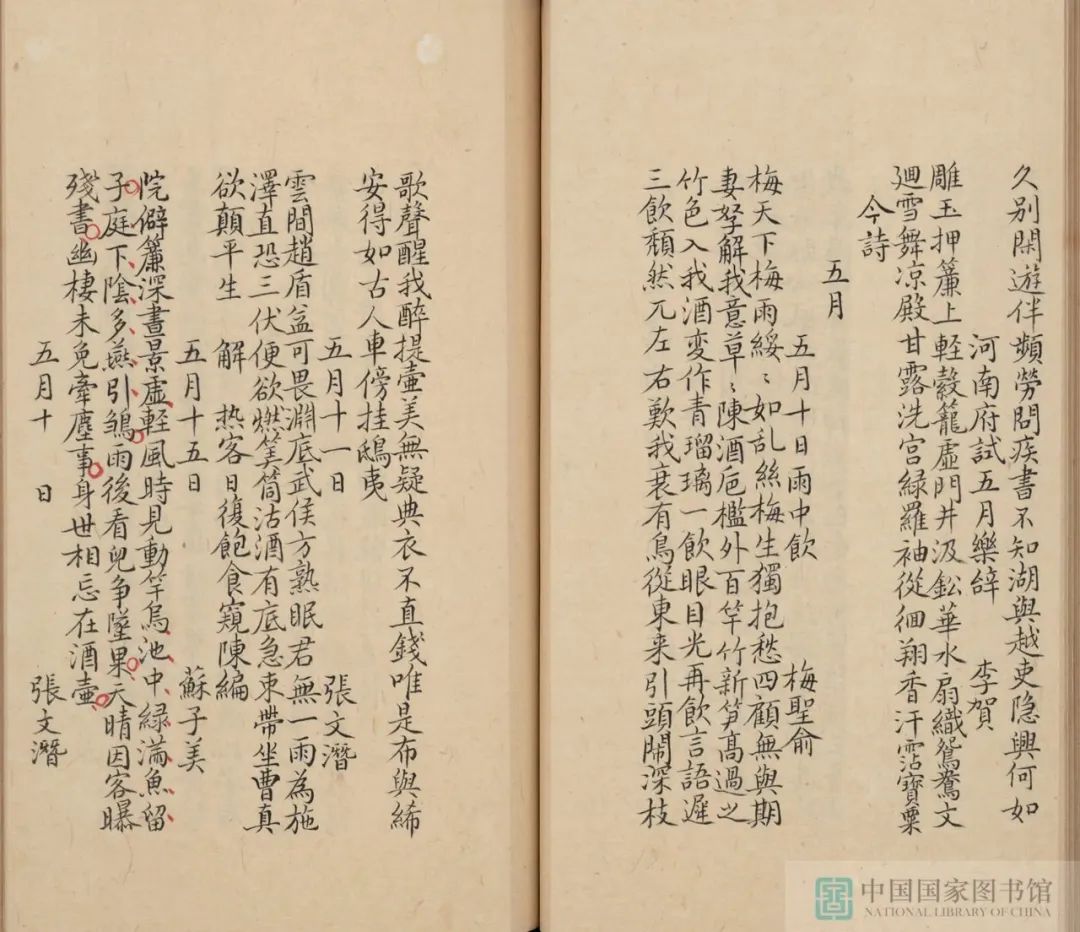 久别閑遊伴頻勞問疾書不知湖與越吏隐興何如
河南府試五月樂辝 李賀
雕玉押簾上軽縠籠虚門井汲鈆華水扇織鴛鴦文
廻雪舞凉殿甘露洗宫緑羅袖從徊翔香汗霑寳粟
今詩
五月
五月十日雨中飲 梅聖俞
梅天下梅雨綏〻如乱絲梅生獨抱愁四顧無與期
妻孥解我意草〻陳酒巵檻外百竿竹新笋髙過之
竹色入我酒變作青瑠璃一飲眼目光再飲言語遲
三飲頽然兀左右歎我衰有鳥從東来引頭鬧深枝
歌聲醒我醉提壷美無疑典衣不直錢唯是布與絺
安得如古人車傍挂鴟夷
五月十一日 張文潛
雲間趙盾益可畏淵底武侯方熟眠君無一雨為施
澤直恐三伏便欲燃筒沽酒有底急束帶坐曹真
欲顛平生 解 热客日復飽食窺陳編
五月十五日 蘇子美
院僻簾深晝景虚軽風時見動竿烏池中緑滿魚留
子庭下陰多燕引鶵雨後看兒争墜果天晴因客曝
殘書幽棲未免牽塵事身世相忘在酒壷
五月十 日 張文潛
中国国家图书馆
NATIONAL LIBRARY OF CHINA